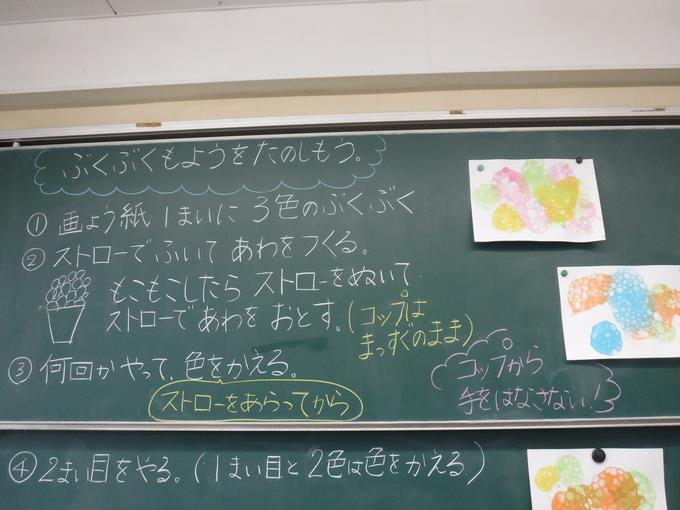 ぶくぶくもようをたのしもう。
① 画よう紙 1まいに 3色のぶくぶく
② ストローでふいて あわをつくる。
もこもこしたら ストローをぬいて
ストローであわを おとす。(コップは
まっすぐのまま)
③ 何回かやって、色をかえる。
ストローをあらってから
コップから
手をはなさない!
④ 2まい目をやる。(1まい目と 2色は色をかえる)